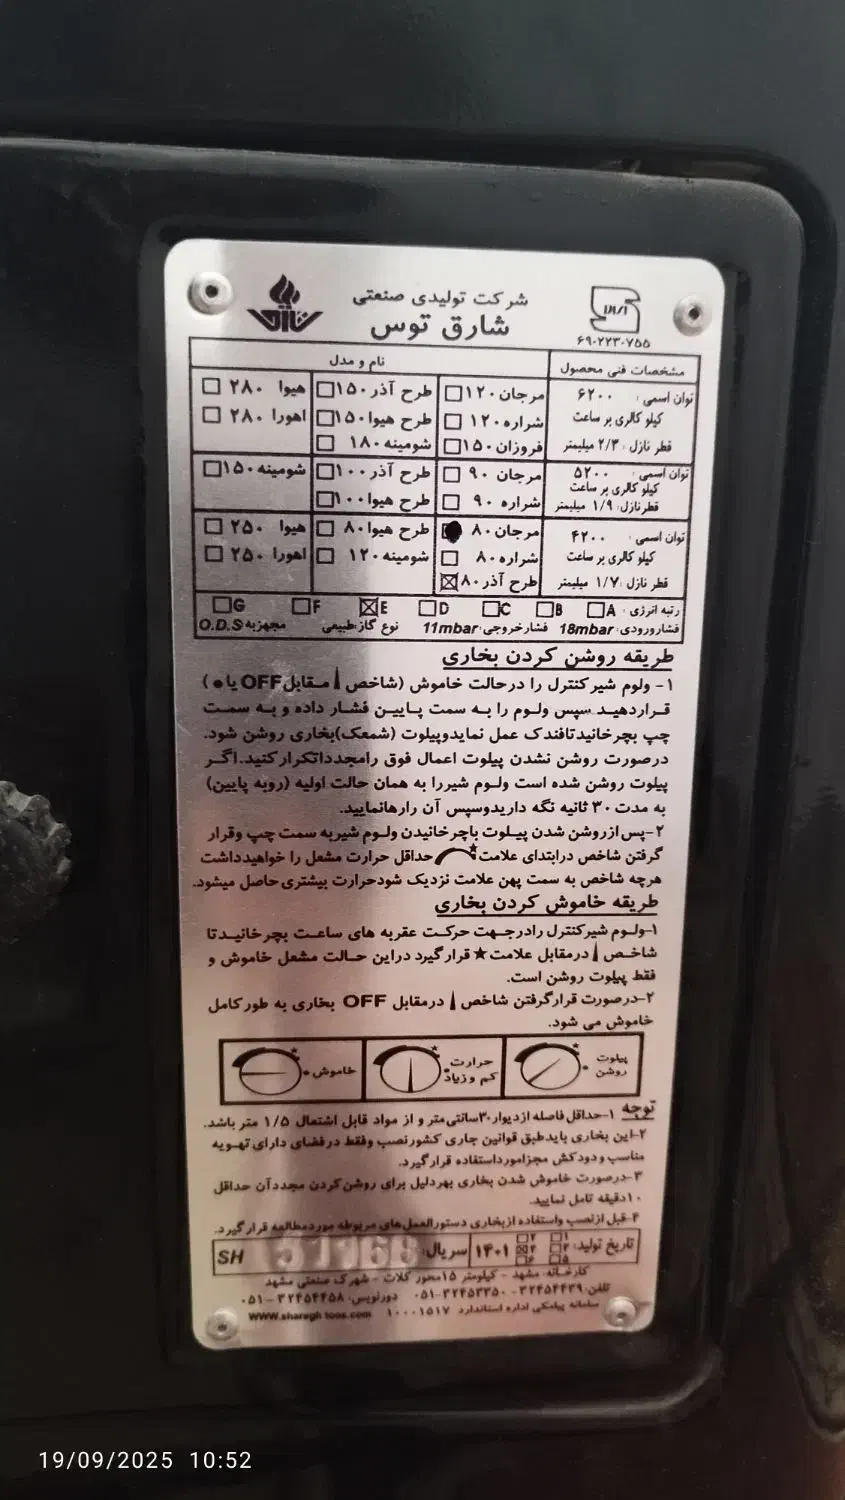 شرکت تولیدی صنعتی
شارق توس
۶۹-۲۲۳-۷۵۵
مشخصات فنی محصول
نام و مدل
توان اسمی : ۶۲۰۰
کیلو کالری بر ساعت
قطر نازل : ۲/۳ میلیمتر
مرجان ۱۲۰ طرح آذر ۱۵۰ هیوا ۲۸۰
شراره ۱۲۰ طرح هیوا ۱۵۰ اهورا ۲۸۰
فروزان ۱۵۰ شومینه ۱۸۰
توان اسمی : ۵۲۰۰
کیلو کالری بر ساعت
قطر نازل : ۱/۹ میلیمتر
مرجان ۹۰ طرح آذر ۱۰۰ شومینه ۱۵۰
شراره ۹۰ طرح هیوا ۱۰۰
توان اسمی : ۴۲۰۰
کیلو کالری بر ساعت
قطر نازل : ۱/۷ میلیمتر
مرجان ۸۰ طرح هیوا ۸۰ هیوا ۲۵۰
شراره ۸۰ شومینه ۱۲۰ اهورا ۲۵۰
طرح آذر ۸۰
رتبه انرژی : A B C D E F G
فشارورودی: 18mbar فشارخروجی: 11mbar نوع گاز:طبیعی مجهزبه O.D.S
طریقه روشن کردن بخاری
۱- ولوم شیرکنترل را درحالت خاموش (شاخص مقابل OFF یا ●)
قراردهید سپس ولوم را به سمت پایین فشار داده و به سمت
چپ بچرخانیدتافندک عمل نمایدوپیلوت (شمعک)بخاری روشن شود.
درصورت روشن نشدن پیلوت اعمال فوق رامجدداتکرارکنید.اگر
پیلوت روشن شده است ولوم شیررا به همان حالت اولیه (روبه پایین)
به مدت ۳۰ ثانیه نگه داریدوسپس آن رارهانمایید.
۲-پس ازروشن شدن پیلوت باچرخانیدن ولوم شیربه سمت چپ وقرار
گرفتن شاخص درابتدای علامت حداقل حرارت مشعل را خواهیدداشت
هرچه شاخص به سمت پهن علامت نزدیک شودحرارت بیشتری حاصل میشود.
طریقه خاموش کردن بخاری
۱-ولوم شیرکنترل رادرجهت حرکت عقربه های ساعت بچرخانیدتا
شاخص درمقابل علامت ★ قرارگیرد دراین حالت مشعل خاموش و
فقط پیلوت روشن است.
۲-درصورت قرارگرفتن شاخص درمقابل OFF بخاری به طورکامل
خاموش می شود.
پیلوت روشن
حرارت کم و زیاد
خاموش
توجه ۱-حداقل فاصله ازدیوار ۳۰سانتی متر و از مواد قابل اشتعال ۱/۵ متر باشد.
۲-این بخاری بایدطبق قوانین جاری کشورنصب وفقط درفضای دارای تهویه
مناسب ودودکش مجزامورداستفاده قرارگیرد.
۳-درصورت خاموش شدن بخاری بهردلیل برای روشن کردن مجددآن حداقل
۱۰دقیقه تامل نمایید.
۴-قبل ازنصب واستفاده ازبخاری دستورالعمل های مربوطه موردمطالعه قرارگیرد.
تاریخ تولید: ۱ ۲ ۳ ۴ ۵ ۶ ۱۴۰۱ سریال: SH
کارخانه: مشهد - کیلومتر ۱۵محور کلات - شهرک صنعتی مشهد
تلفن: ۳۲۴۵۴۴۳۹ - ۳۲۴۵۳۳۵۰-۰۵۱ دورنویس: ۳۲۴۵۴۴۵۸-۰۵۱
سامانه پیامکی اداره استاندارد ۱۰۰۰۱۵۱۷ www.sharagh toos.com
19/09/2025 10:52